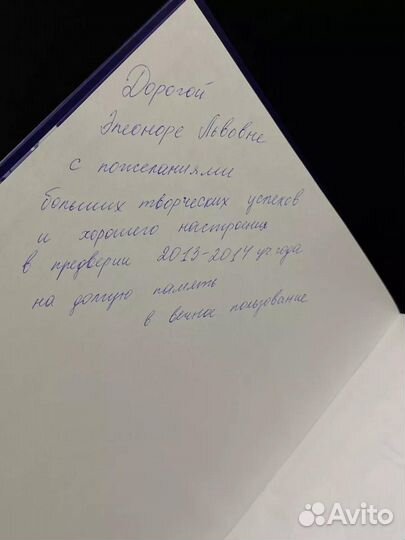 Дорогой
Элеоноре Львовне
с пожеланиями
больших творческих успехов
и хорошего настроения
в предверии 2013-2014 уч года
на долгую память
в вечное пользование
Avito